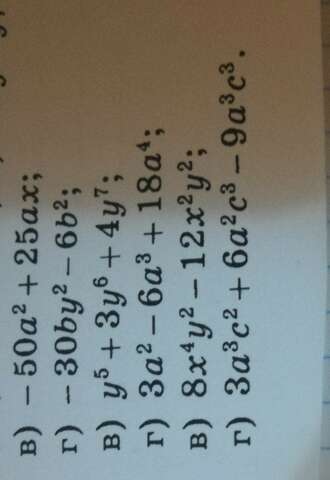 в) −50a² + 25ax;
г) −30by² − 6b²;
в) y⁵ + 3y⁶ + 4y⁷;
г) 3a² − 6a³ + 18a⁴;
в) 8x⁴y² − 12x²y²;
г) 3a³c² + 6a²c³ − 9a³c³.